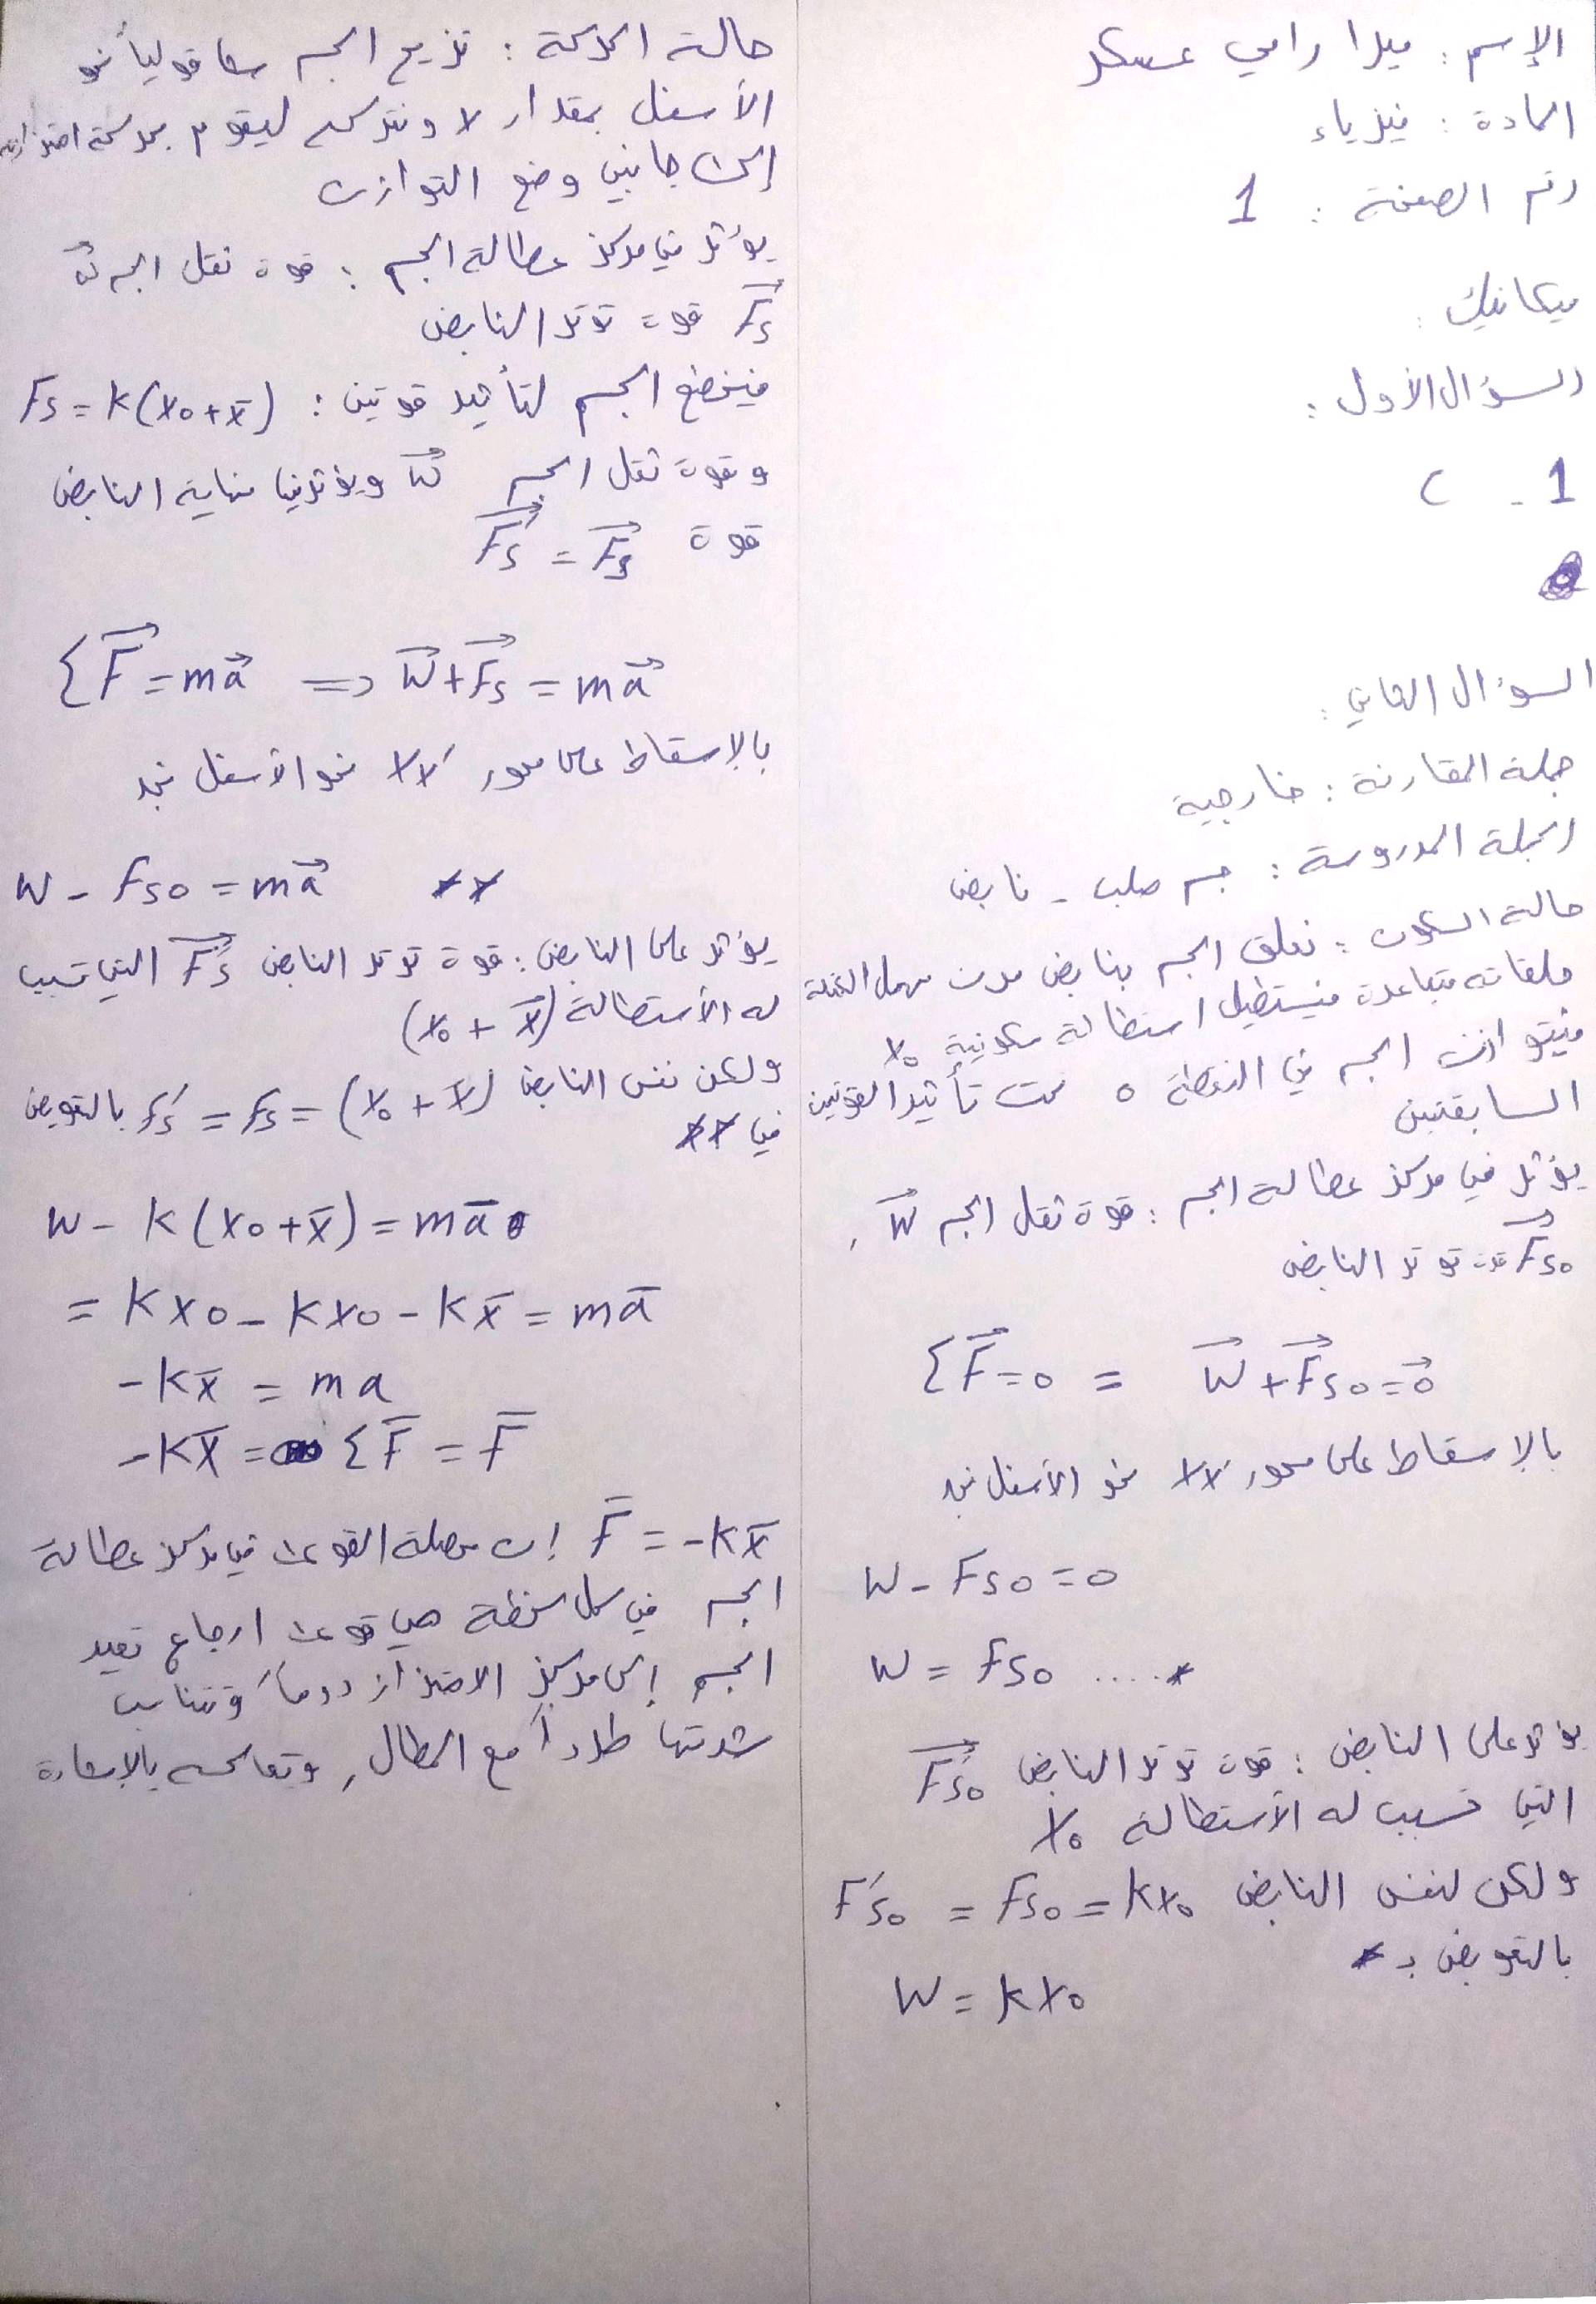 الإسم : ميرا رامي عسكر
المادة : فيزياء
رقم الصفحة : 1
ميكانيك :
السؤال الأول :
1 - c
السؤال الثاني :
جملة المقارنة : خارجية
الجملة المدروسة : جسم صلب - نابض
حالة السكون : نعلق الجسم بنابض مرن مهمل الكتلة
حلقاته متباعدة فيستطيل استطالة سكونية x₀
فيتوازن الجسم في النقطة o تحت تأثير القوتين
السابقتين
يؤثر في مركز عطالة الجسم : قوة ثقل الجسم W⃗ ,
F⃗s₀ قوة توتر النابض
Σ F⃗ = 0 = W⃗ + F⃗s₀ = 0⃗
بالإسقاط على محور xx́ نحو الأسفل نجد
W - Fs₀ = 0
W = Fs₀ .... *
يؤثر على النابض : قوة توتر النابض F⃗́s₀
التي تسبب له الأستطالة x₀
ولكن لنفس النابض F́s₀ = Fs₀ = kx₀
بالتعويض بـ *
W = kx₀
حالة الحركة : نزيح الجسم شاقولياً نحو
الأسفل بمقدار x ونتركه ليقوم بحركة اهتزازية
إلى جانبي وضع التوازن
يؤثر في مركز عطالة الجسم : قوة ثقل الجسم W⃗
F⃗s قوة توتر النابض
فيخضع الجسم لتأثير قوتين : Fs = k(x₀+x̄)
وقوة ثقل الجسم W⃗ ويؤثر في نهاية النابض
قوة F⃗́s = F⃗s
Σ F⃗ = ma⃗ => W⃗ + F⃗s = ma⃗
بالإسقاط على محور xx́ نحو الأسفل نجد
W - Fs₀ = ma⃗ **
يؤثر على النابض : قوة توتر النابض F⃗́s التي تسبب
له الأستطالة (x₀ + x̄)
ولكن نفس النابض F́s = Fs = (x₀ + x̄) بالتعويض
في **
W - k(x₀ + x̄) = mā
= kx₀ - kx₀ - kx̄ = mā
-kx̄ = ma
-kx̄ = Σ F̄ = F̄
F̄ = -kx̄ إن محصلة القوى في مركز عطالة
الجسم في كل لحظة هي قوى ارجاع تعيد
الجسم إلى مركز الاهتزاز دوماً وتتناسب
شدتها طرداً مع المطال , وتعاكسه بالإشارة